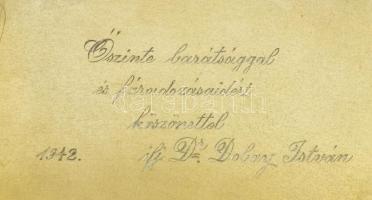 Őszinte barátsággal
és fáradozásaidért
köszönettel
1942. ifj Dr. Dobay István